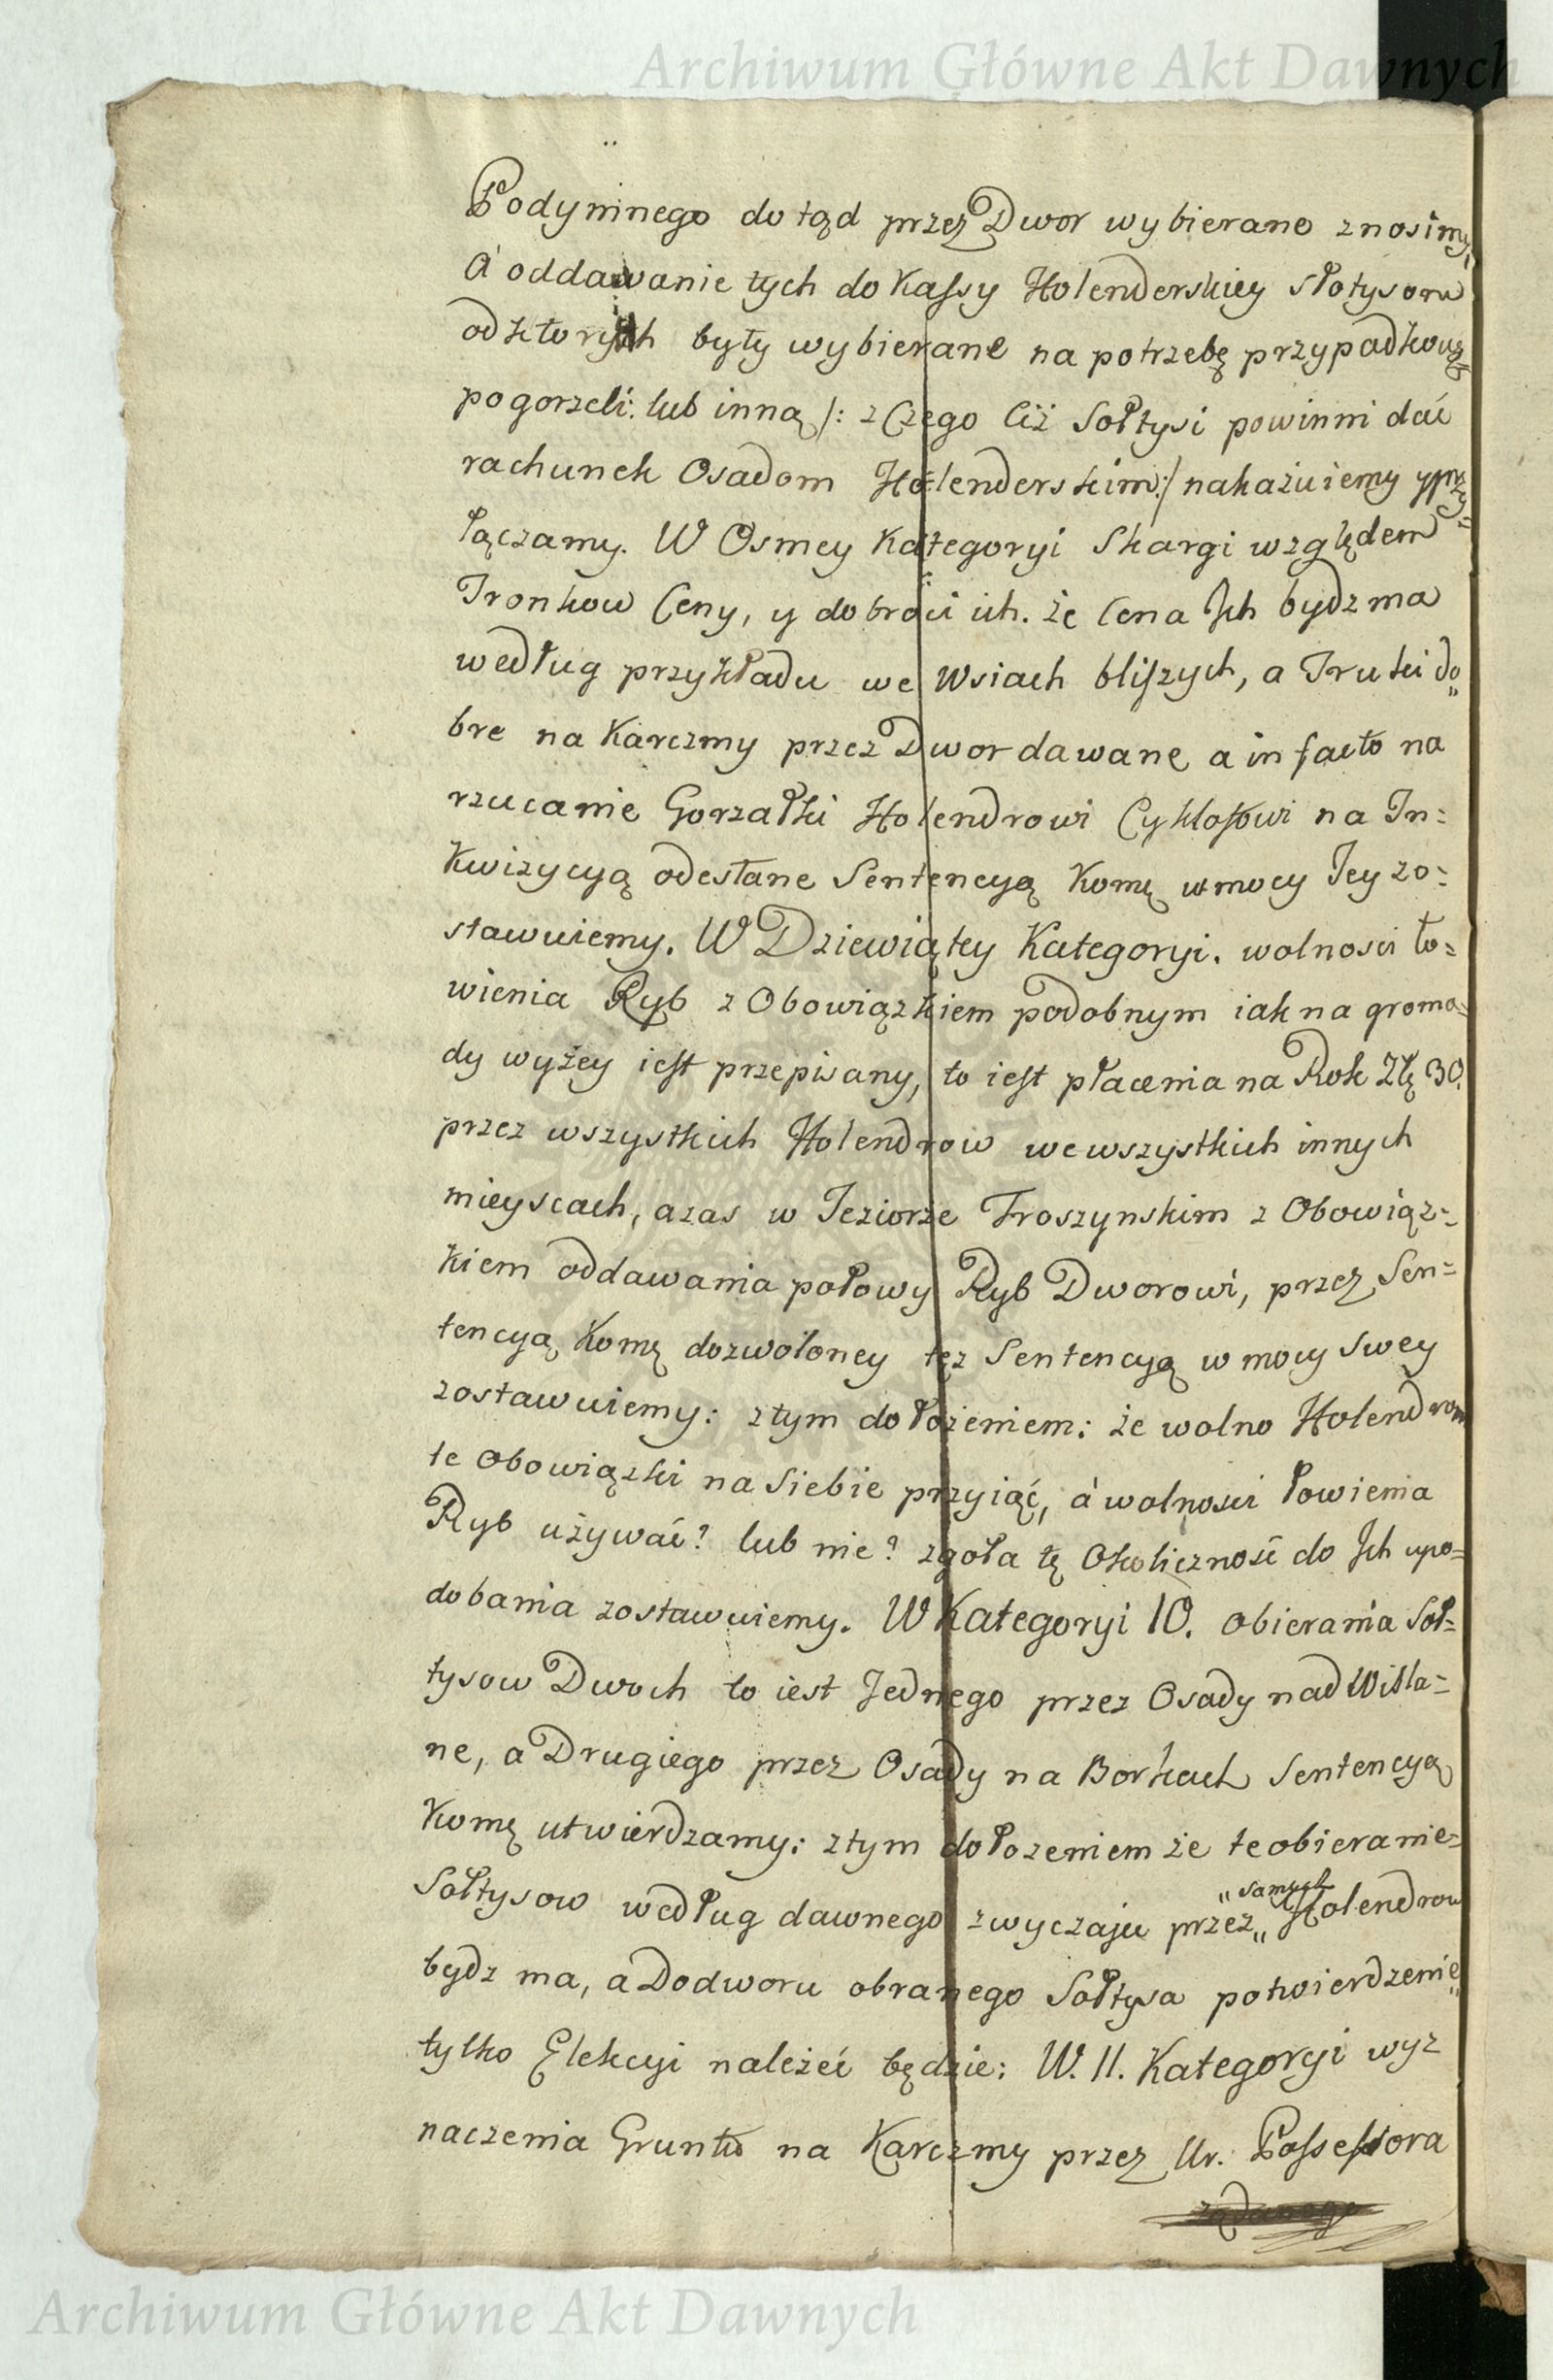 Archiwum Główne Akt Dawnych
Podymnego do tąd przez Dwor wybierane znosimy,
A oddawanie tych do Kassy Holenderskiey słotysom
od ktorych były wybierane na potrzebę przypadkową
pogorzeli: lub inną /: z Czego Ciż Sołtysi powinni dać
rachunek Osadom Holenderskim:/ nakazuiemy y przy=
łączamy. W Osmey Kategoryi Skargi względem
Tronkow Ceny, y dobroci ich. że Cena Jch bydz ma
według przykładu we Wsiach bliszych, a Trunki do„
bre na Karczmy przez Dwor dawane a in facto na
rzucanie Gorzałki Holendrowi Cyklosowi na In=
kwizycyą odesłane Sentencyą Komę w mocy Jey zo=
stawuiemy. W Dziewiątey Kategoryi. wolnosci ło=
wienia Ryb z Obowiązkiem podobnym iak na groma=
dy wyżey iest przepisany, to iest płacenia na Rok Złę 30.
przez wszystkich Holendrow we wszystkich innych
mieyscach, a zas w Jeziorze Troszynskim z Obowiąz=
kiem oddawania połowy Ryb Dworowi, przez Sen=
tencyą Komę dozwoloney tęz Sentencyą w mocy swey
zostawuiemy: z tym dołożeniem: że wolno Holendrom
te Obowiązki na Siebie przyiąć, á wolnosci łowienia
Ryb używać? lub nie? zgoła tę Okoliczność do Jch upo=
dobania zostawuiemy. W Kategoryi 10. obierania Soł=
tysow Dwoch to iest Jednego przez Osady nad Wisla=
ne, a Drugiego przez Osady na Borkach Sentencyą
Komę utwierdzamy: z tym dołozeniem że te obieranie=
Sołtysow według dawnego zwyczaju przez „samych„ Holendrow
bydz ma, a Do dworu obranego Sołtysa potwierdzenie„
tylko Elekcyi należeć będzie: W. 11. Kategoryi wyz
naczenia Gruntu na Karczmy przez Ur. Possessora
żądanego
Archiwum Główne Akt Dawnych